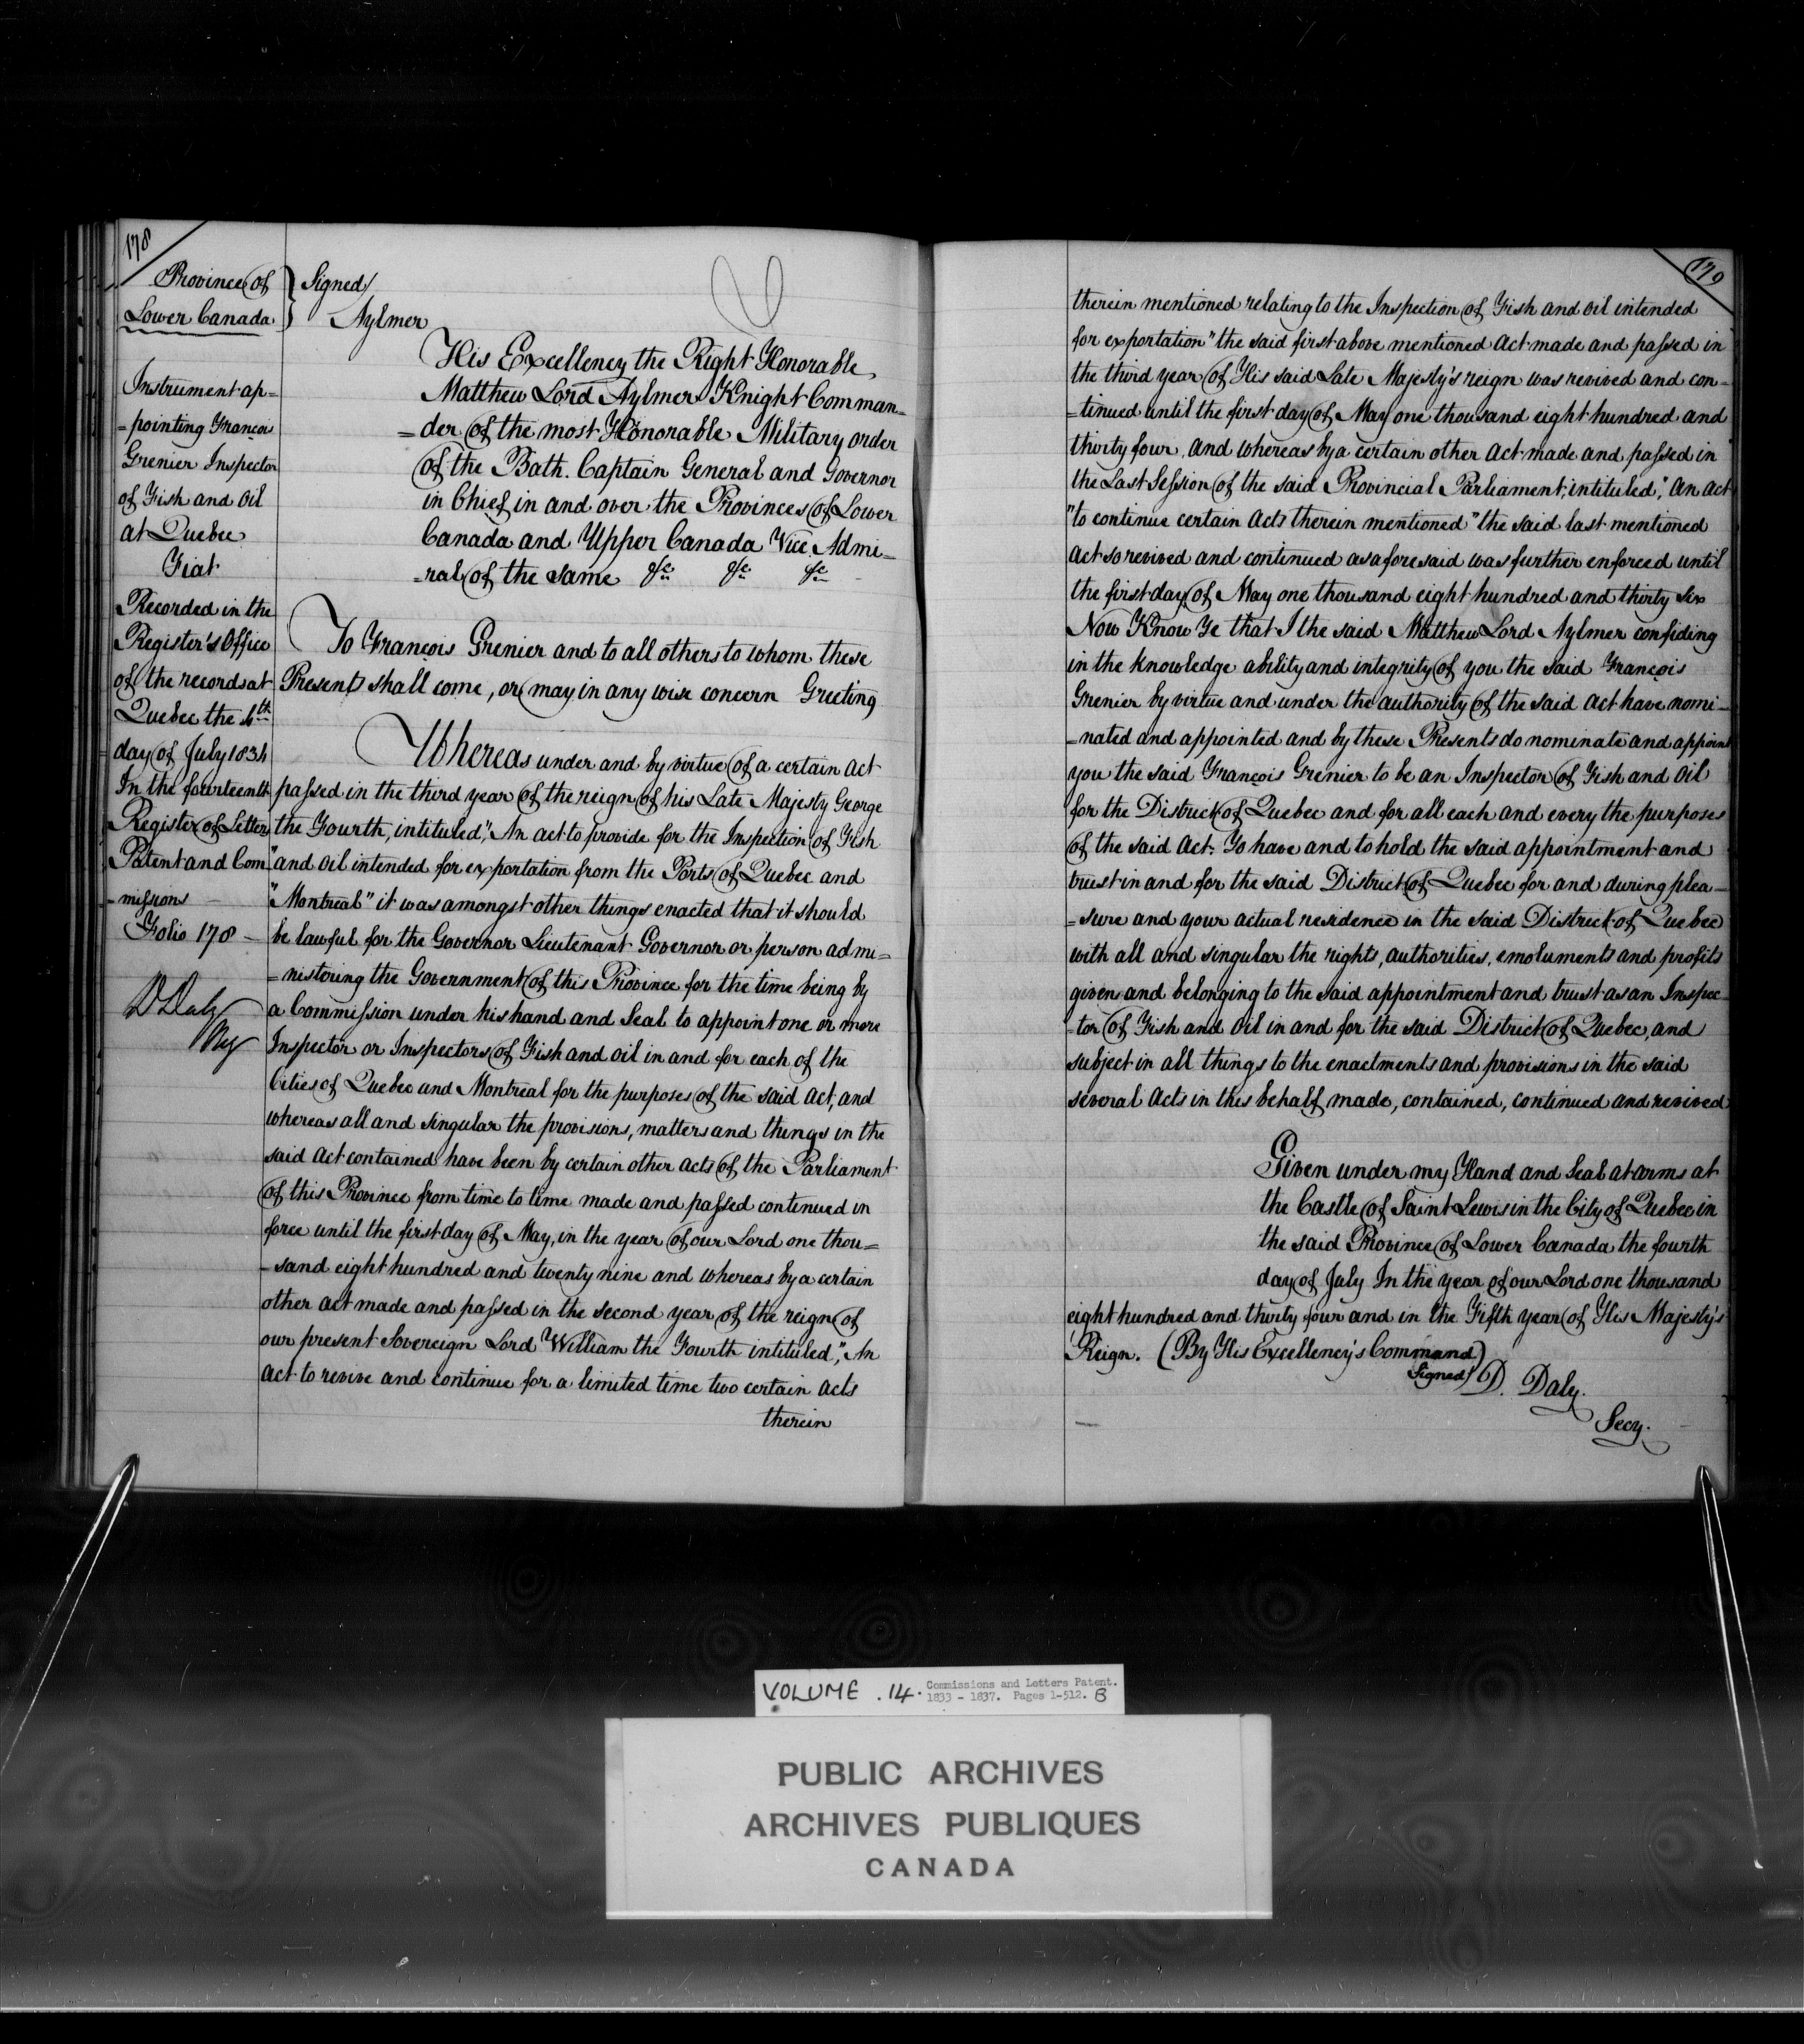 178
Province of
Lower Canada
Signed/
Aylmer
Instrument ap=
=pointing François
Grenier Inspector
of Fish and Oil
at Quebec
Fiat
Recorded in the
Register's Office
of the records at
Quebec the 4th
day of July 1834
In the fourteenth
Register of Letters
Patent and Com
=missions
Folio 178
D Daly
Reg
His Excellency the Right Honorable
Matthew Lord Aylmer Knight Comman=
=der of the most Honorable Military order
of the Bath. Captain General and Governor
in Chief in and over the Provinces of Lower
Canada and Upper Canada Vice Admi=
=ral of the same &c &c &c
To François Grenier and to all others to whom these
Presents shall come, or may in any wise concern Greeting
Whereas under and by virtue of a certain act
passed in the third year of the reign of his Late Majesty George
the Fourth, intituled, "An act to provide for the Inspection of Fish
"and Oil intended for exportation from the Ports of Quebec and
"Montreal" it was amongst other things enacted that it should
be lawful for the Governor Lieutenant Governor or person admi=
=nistering the Government of this Province for the time being by
a Commission under his hand and Seal to appoint one or more
Inspector or Inspectors of Fish and Oil in and for each of the
Cities of Quebec and Montreal for the purposes of the said act, and
whereas all and singular the provisions, matters and things in the
said act contained have been by certain other acts of the Parliament
of this Province from time to time made and passed continued in
force until the first day of May, in the year of our Lord one thou=
=sand eight hundred and twenty nine and whereas by a certain
other act made and passed in the second year of the reign of
our present Sovereign Lord William the Fourth intituled, "An
act to revive and continue for a limited time two certain acts
therein
179
therein mentioned relating to the Inspection of Fish and Oil intended
for exportation" the said first above mentioned act made and passed in
the third year of His said Late Majesty's reign was revived and con=
=tinued until the first day of May one thousand eight hundred and
thirty four, and whereas by a certain other act made and passed in
the Last Session of the said Provincial Parliament, intituled, "An act
"to continue certain Acts therein mentioned" the said last mentioned
act so revived and continued as aforesaid was further enforced until
the first day of May one thousand eight hundred and thirty Six
Now Know Ye that I the said Matthew Lord Aylmer confiding
in the knowledge ability and integrity of you the said François
Grenier by virtue and under the authority of the said act have nomi=
=nated and appointed and by these Presents do nominate and appoint
you the said François Grenier to be an Inspector of Fish and Oil
for the District of Quebec and for all each and every the purposes
of the said act. To have and to hold the said appointment and
trust in and for the said District of Quebec for and during plea=
=sure and your actual residence in the said District of Quebec
with all and singular the rights, authorities, emoluments and profits
given and belonging to the said appointment and trust as an Inspec=
=tor of Fish and Oil in and for the said District of Quebec, and
subject in all things to the enactments and provisions in the said
several Acts in this behalf made, contained, continued and revived
Given under my Hand and Seal at arms at
the Castle of Saint Lewis in the City of Quebec in
the said Province of Lower Canada the fourth
day of July In the year of our Lord one thousand
eight hundred and thirty four and in the Fifth year of His Majesty's
Reign. (By His Excellency's Command)
Signed/ D. Daly.
Secy.
VOLUME .14. Commissions and Letters Patent.
1833 - 1837. Pages 1-512. B
PUBLIC ARCHIVES
ARCHIVES PUBLIQUES
CANADA